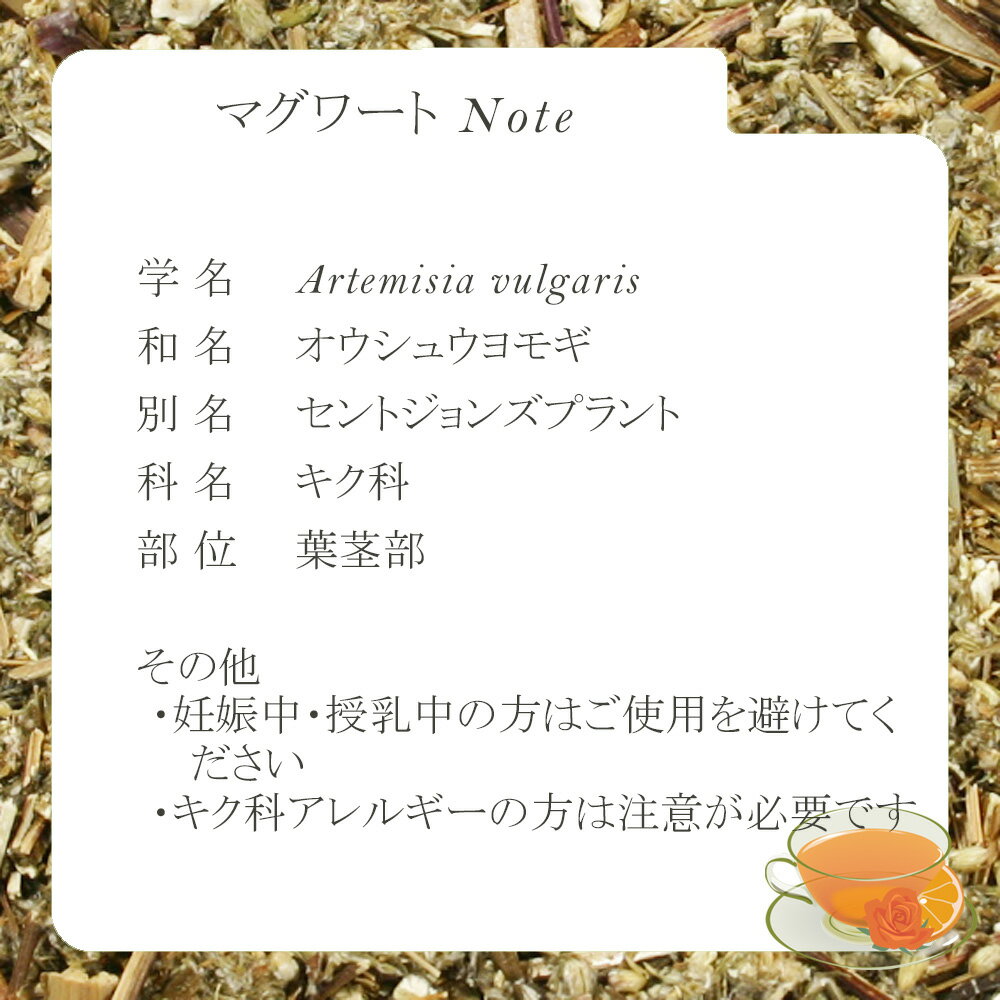 マグワート Note
学名 Artemisia vulgaris
和名 オウシュウヨモギ
別名 セントジョンズプラント
科名 キク科
部位 葉茎部
その他
・妊娠中・授乳中の方はご使用を避けてく
ださい
・キク科アレルギーの方は注意が必要です